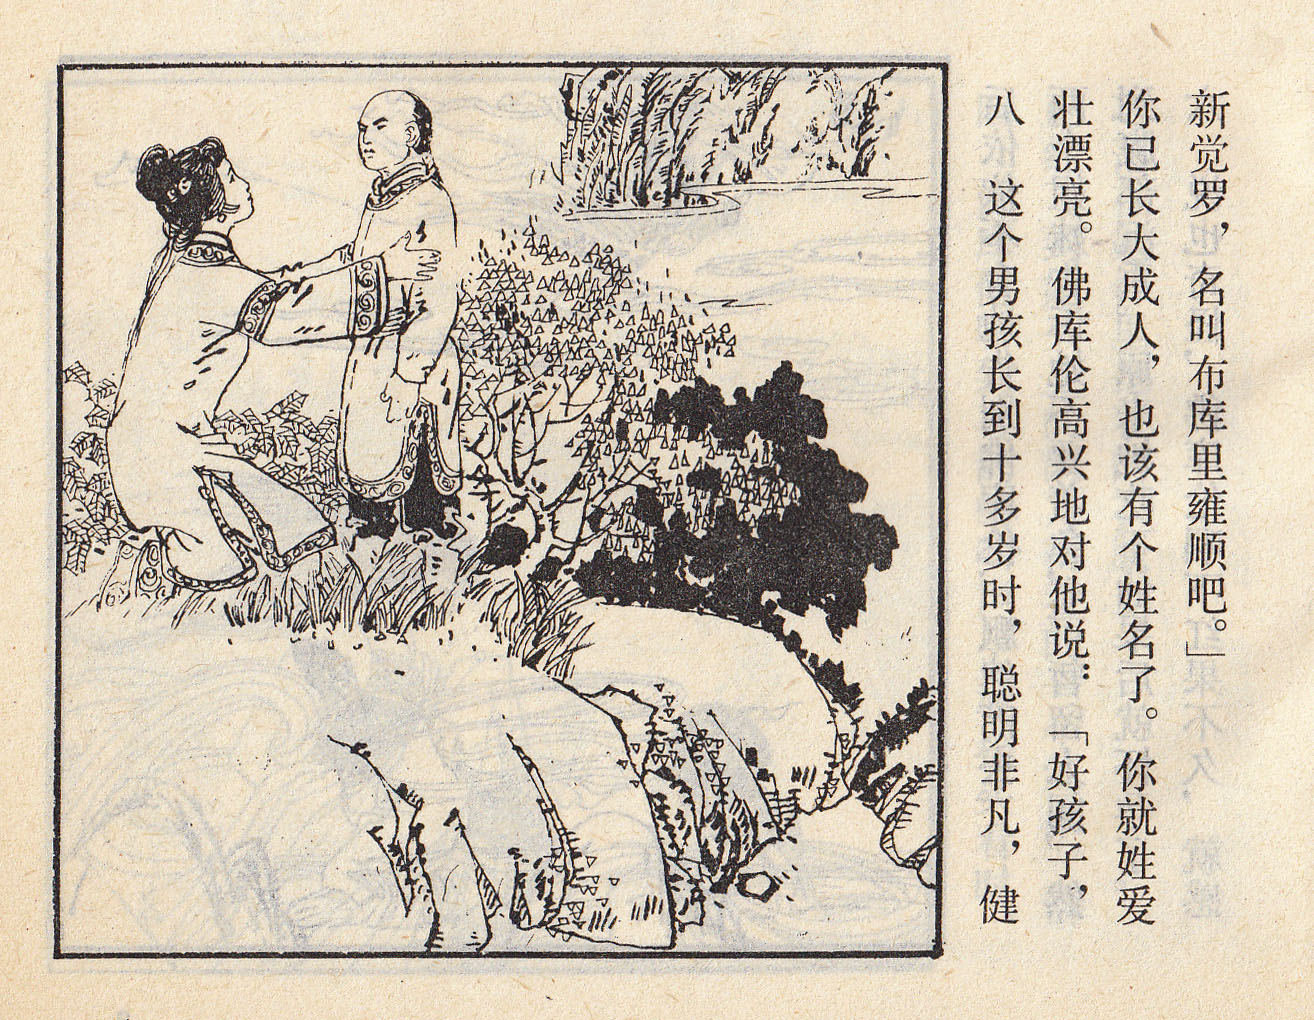 八 这个男孩长到十多岁时，聪明非凡，健
壮漂亮。佛库伦高兴地对他说：「好孩子，
你已长大成人，也该有个姓名了。你就姓爱
新觉罗，名叫布库里雍顺吧。」